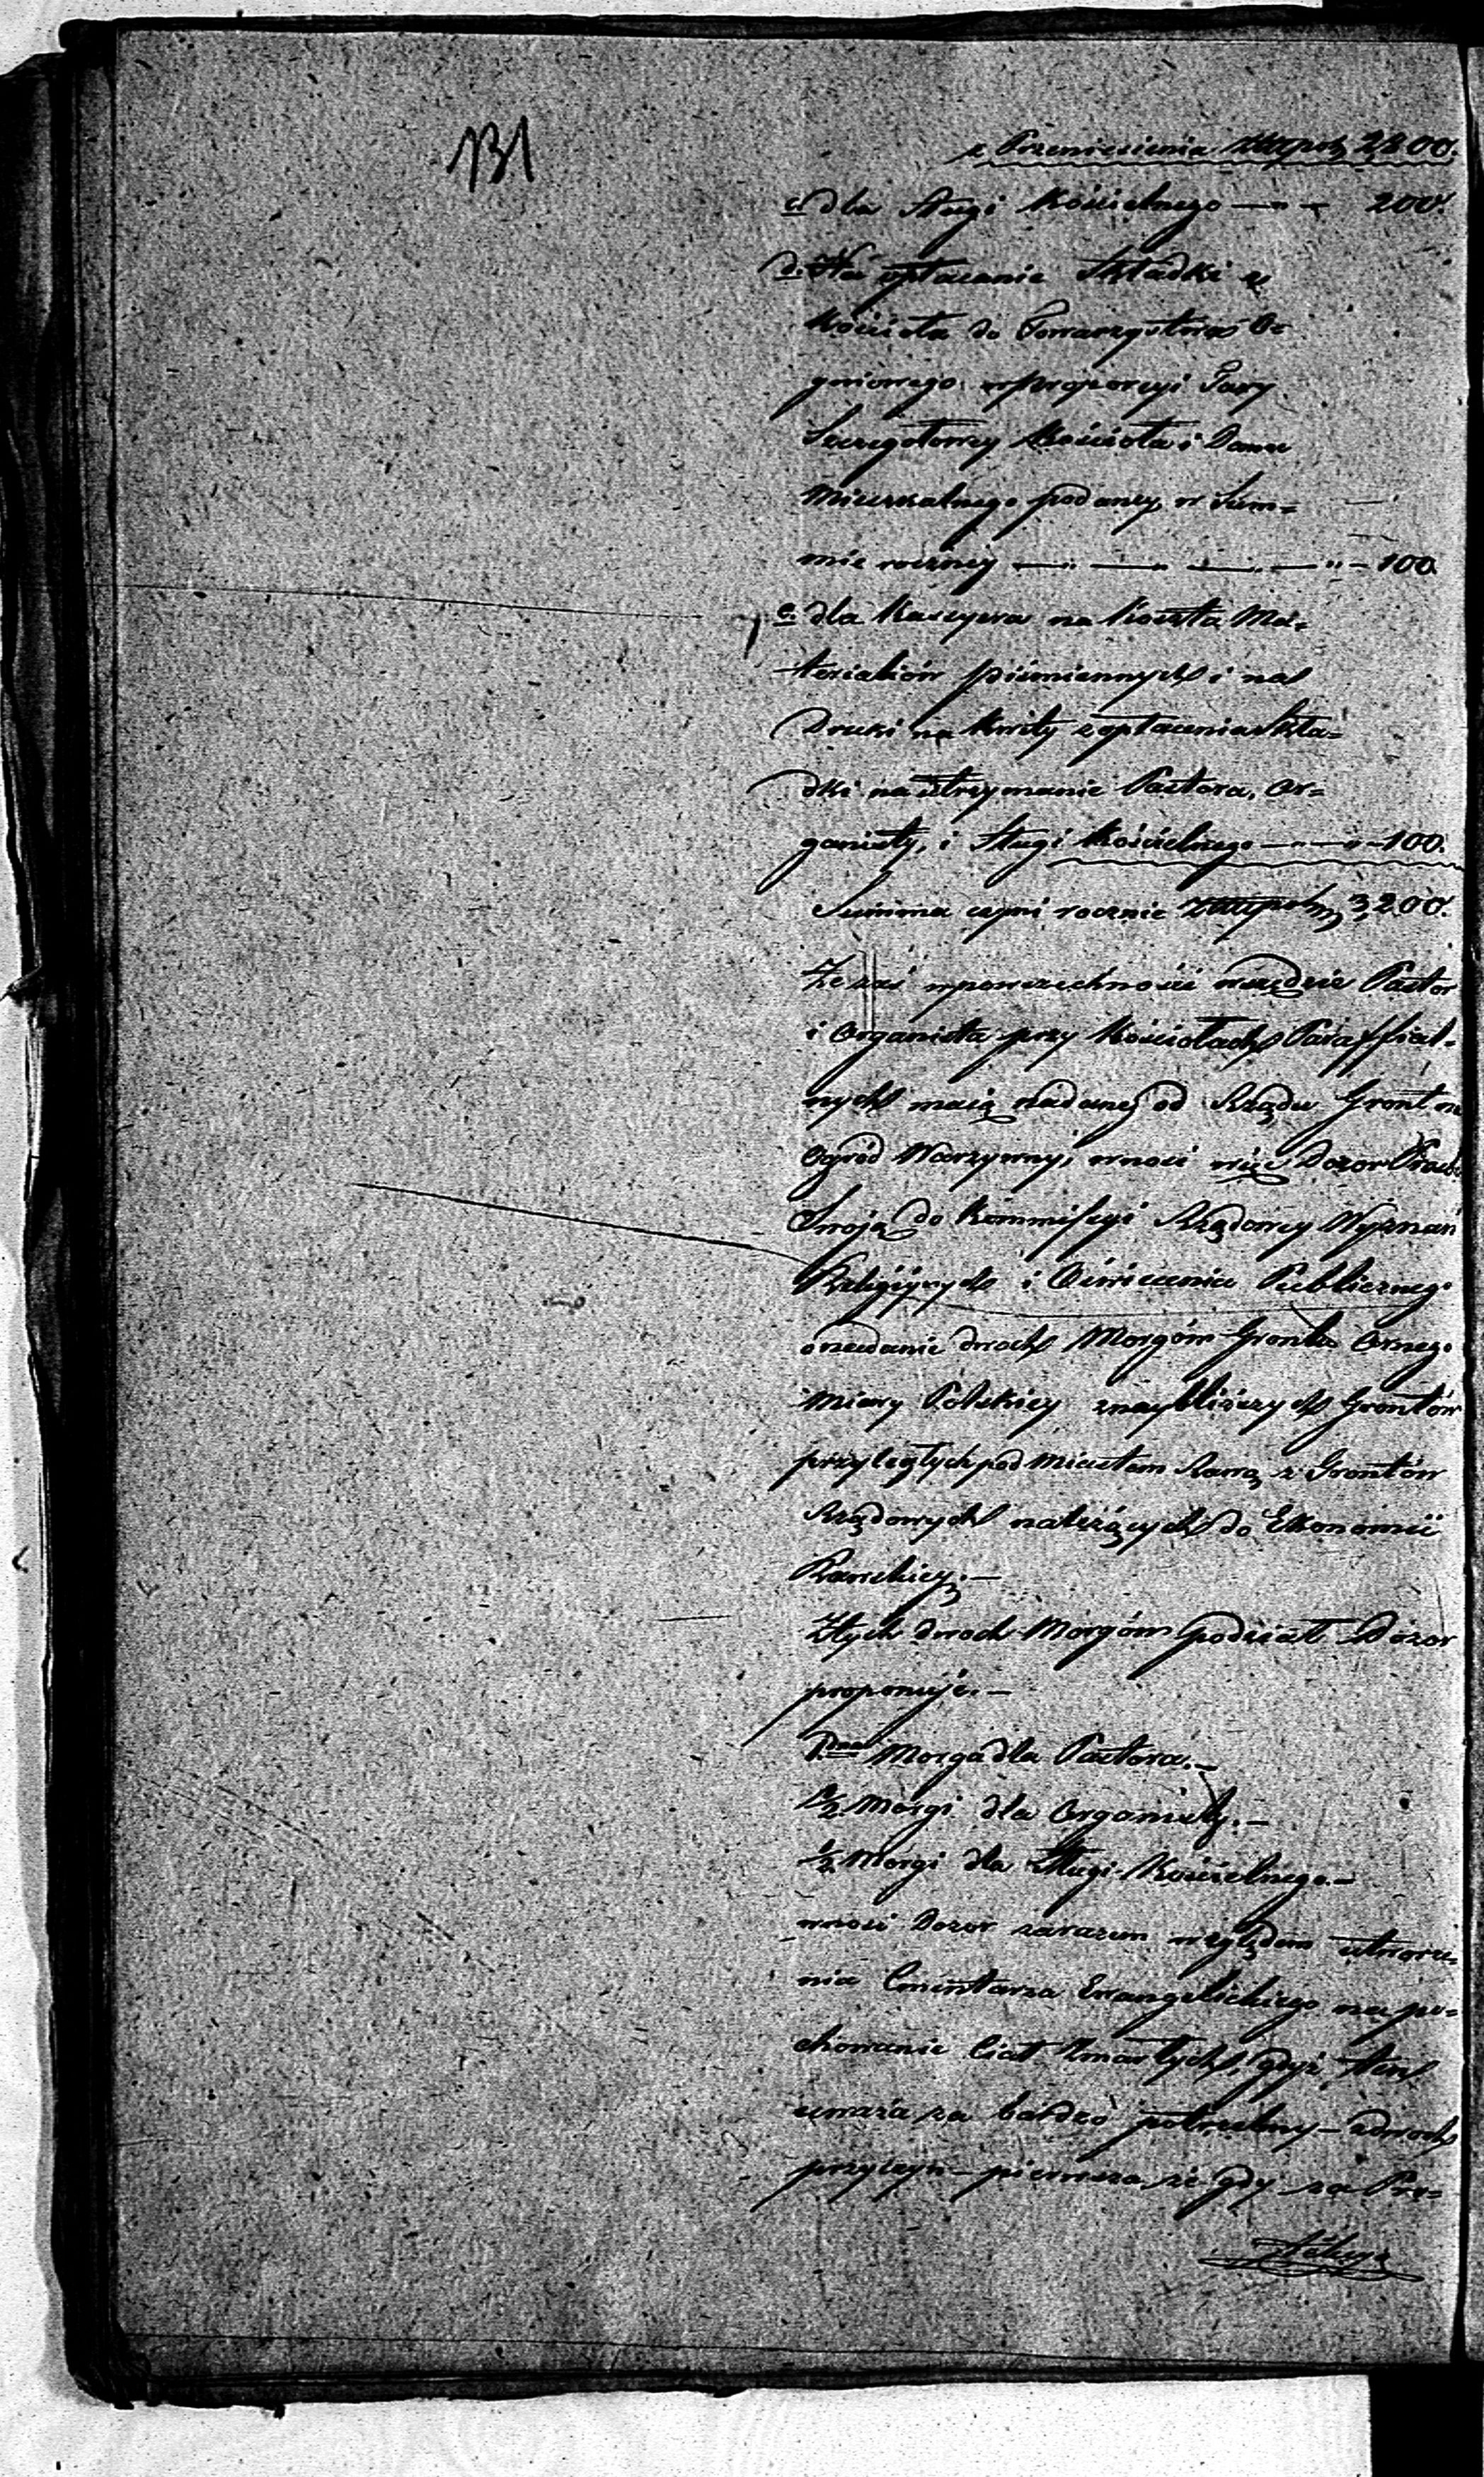 131
z Przeniesienia Złłpol 2,800.
c. dla Sługi Kościelnego — „ — 200.
d. Na opłacanie Składki z
Kościoła do Towarzystwa O-
gniowego w proporcyi Taxy
Szczegołowey Kościoła i Domu
Mieszkalnego podaney, w Sum=
mie roczney — „ — „ — „ — „ — 100.
e. dla Kassyera na koszta Ma=
teriałów piśmiennych i na
Druki na kwity z opłacenia skła=
dki na utrzymanie Pastora, Or=
ganisty, i Sługi Kościelnego — „ — „ — 100.
Summa czyni rocznie Złłpol 3,200.
Że zaś w powszechności wszędzie Pastor
i Organista przy Kościołach Paraffial=
nych maią nadany od Rządu Gront na
Ogród Warzywny, wnosi więc Dozor Prośbę
Swoją do Kommissyi Rządowey Wyznań
Religijnych i Oświecenia Publicznego
o nadanie dwoch Morgów Grontu Ornego
Miary Polskiey z naybliższych Grontów
przyległych pod Miastem Rawą z Grontów
Rządowych należących do Ekonomii
Rawskiey. —
Z tych dwoch Morgów podział Dozor
proponuje. —
1.na Morga dla Pastora. —
1/2 Morgi dla Organisty. —
1/2 Morgi dla Sługi Kościelnego. —
wnosi Dozor zarazem względem utworze=
nia Cmentarza Ewangelickiego na po=
chowanie Ciał Zmarłych, gdyż ten
uważa za bardzo potrzebny — z dwoch
przyczyn — pierwsza że gdy za Pru=